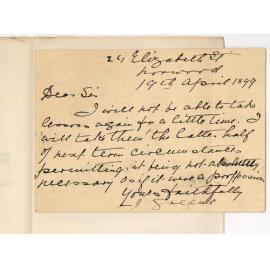 24 Elizabeth St
Norwood
19th April 1899
Dear Sir
I will not be able to take
lessons again for a little time. I
will take them the latter half
of next term circumstances
permitting, it being not absolutely
necessary as if it were a profession
Yours faithfully